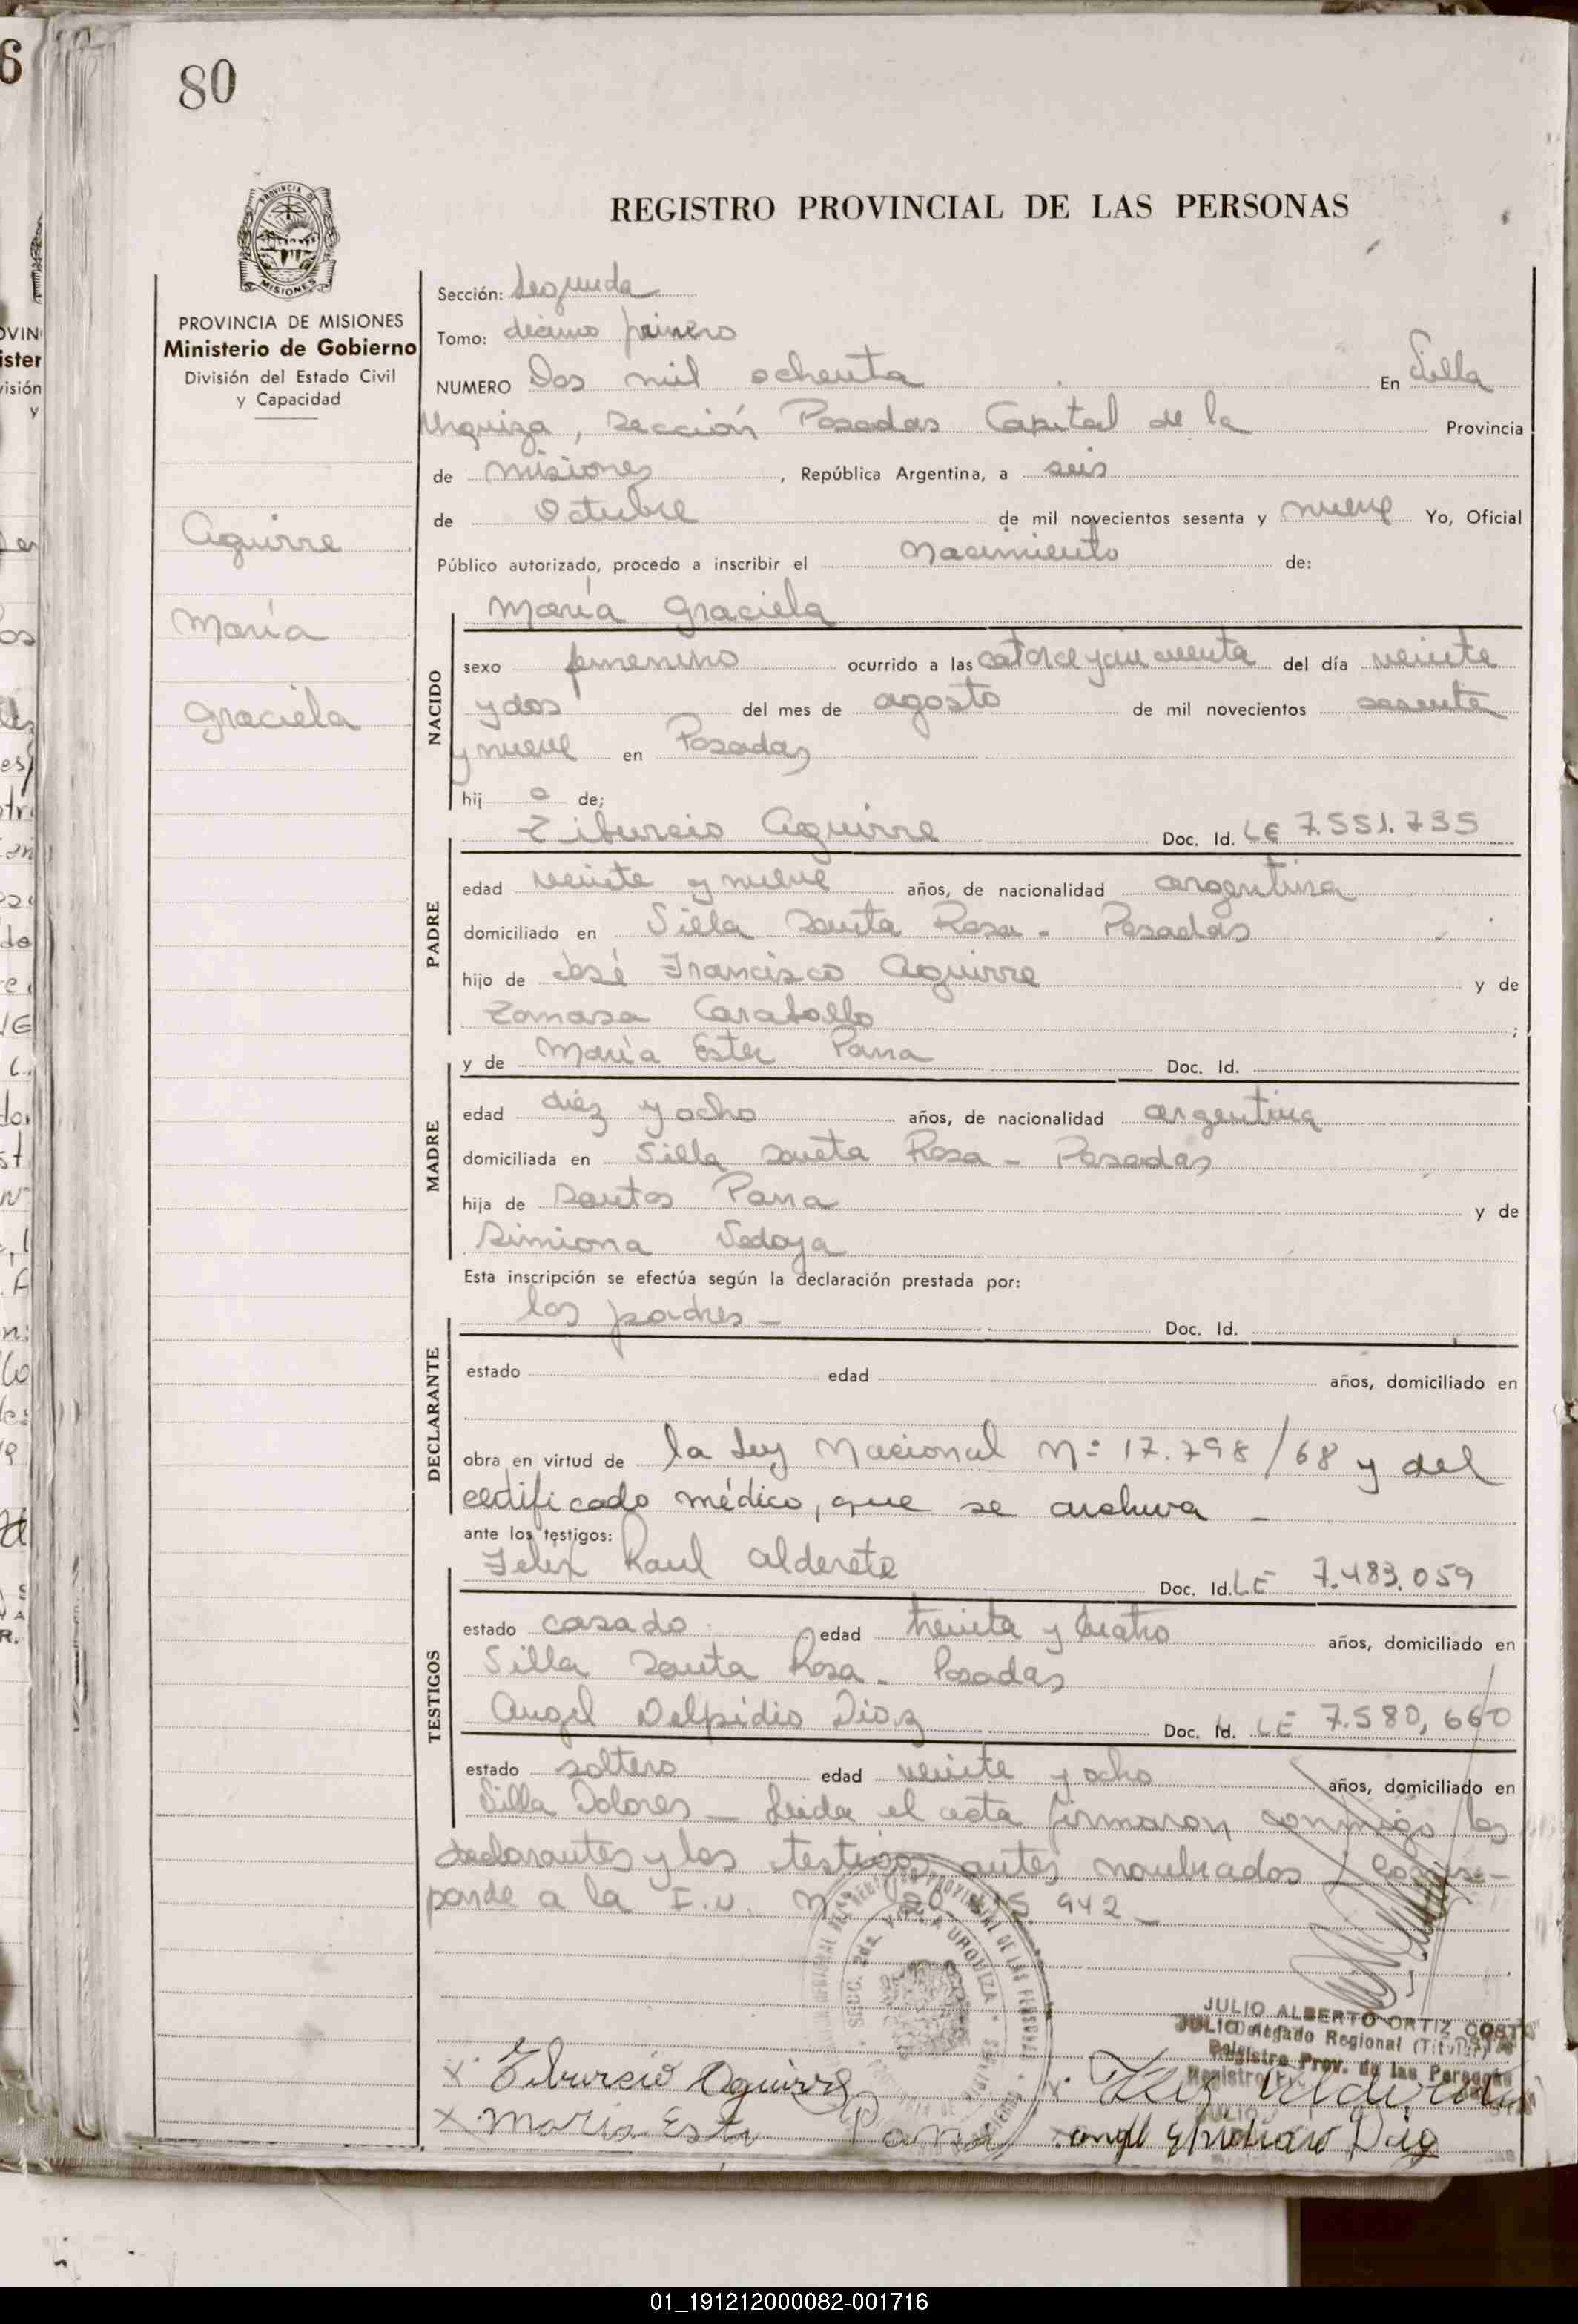 80
PROVINCIA DE MISIONES
REGISTRO PROVINCIAL DE LAS PERSONAS
PROVINCIA DE MISIONES
Ministerio de Gobierno
División del Estado Civil
y Capacidad
Aguirre
María
Graciela
Sección: Segunda
Tomo: décimo primero
NUMERO Dos mil ochenta En Villa
Urquiza, sección Posadas Capital de la Provincia
de misiones, República Argentina, a seis
de Octubre de mil novecientos sesenta y nueve Yo, Oficial
Público autorizado, procedo a inscribir el nacimiento de:
María Graciela
NACIDO
sexo femenino ocurrido a las catorce y cincuenta del día veinte
y dos del mes de agosto de mil novecientos sesenta
y nueve en Posadas
hij a de;
Tiburcio Aguirre Doc. Id. LE 7.551.735
PADRE
edad veinte y nueve años, de nacionalidad argentina
domiciliado en Villa Santa Rosa - Posadas
hijo de José Francisco Aguirre y de
Tomasa Caraballo;
y de María Ester Parra Doc. Id.
MADRE
edad diez y ocho años, de nacionalidad argentina
domiciliada en Villa Santa Rosa - Posadas
hija de Santos Parra y de
Simiona Sedoya
Esta inscripción se efectúa según la declaración prestada por:
los padres - Doc. Id.
DECLARANTE
estado edad años, domiciliado en
obra en virtud de la Ley Nacional Nº 17.798/68 y del
certificado médico, que se archiva -
ante los testigos:
Felix Raul Alderete Doc. Id. LE 7.483.059
TESTIGOS
estado casado edad treinta y cuatro años, domiciliado en
Villa Santa Rosa - Posadas
Angel Delpidio Diaz Doc. Id. LE 7.580,660
estado soltero edad veinte y ocho años, domiciliado en
Villa Dolores - Leida el acta firmaron conmigo los
declarantes y los testigos antes nombrados / Corres-
ponde a la I.U. Nº 942 -
SECC. 2da. VILLA URQUIZA
JULIO ALBERTO ORTIZ COSTA
Delegado Regional (Titular)
Registro Prov. de las Personas
x Tiburcio Aguirre
x Maria Ester Parra
x Angel Diaz
01_191212000082-001716